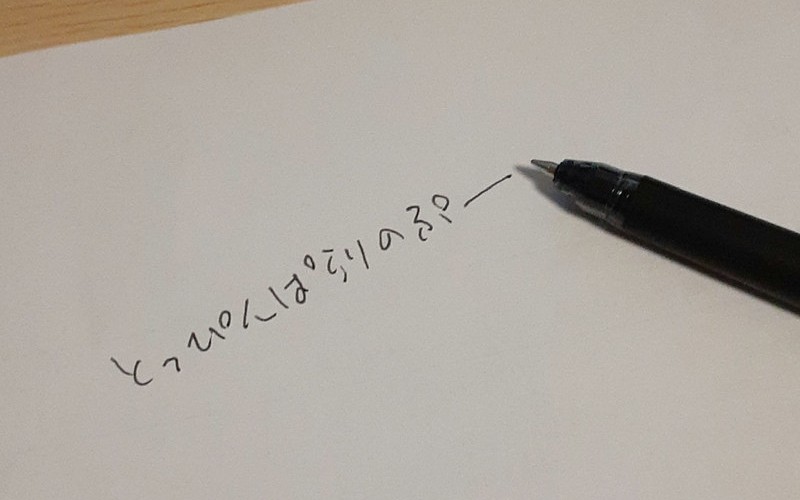 とっぴんぱらりのぷー